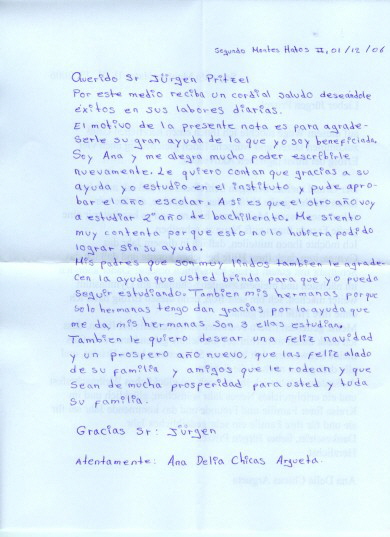 Segundo Montes Hatos II, 01/12/06
Querido Sr Jürgen Pritzel
Por este medio reciba un cordial saludo deseandole
éxitos en sus labores diarias.
El motivo de la presente nota es para agrade-
serle su gran ayuda de la que yo soy beneficiada.
Soy Ana y me alegra mucho poder escribirle
nuevamente. Le quiero contar que gracias a su
ayuda yo estudio en el instituto y pude apro-
bar el año escolar. A si es que el otro año voy
a estudiar 2º año de bachillerato. Me siento
muy contenta por que esto no lo hubiera podido
lograr sin su ayuda.
Mis padres que son muy lindos tambien le agrade-
cen la ayuda que usted brinda para que yo pueda
seguir estudiando. Tambien mis hermanas porque
solo hermanas tengo dan gracias por la ayuda que
me da mis hermanas son 3 ellas estudian.
Tambien le quiero desear una feliz navidad
y un prospero año nuevo, que las feliz alado
de su familia y amigos que le rodean y que
sean de mucha prosperidad para usted y toda
su familia.
Gracias Sr: Jürgen
Atentamente: Ana Delia Chicas Argueta.